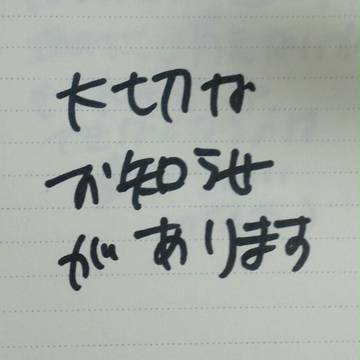 大切な
お知らせ
があります